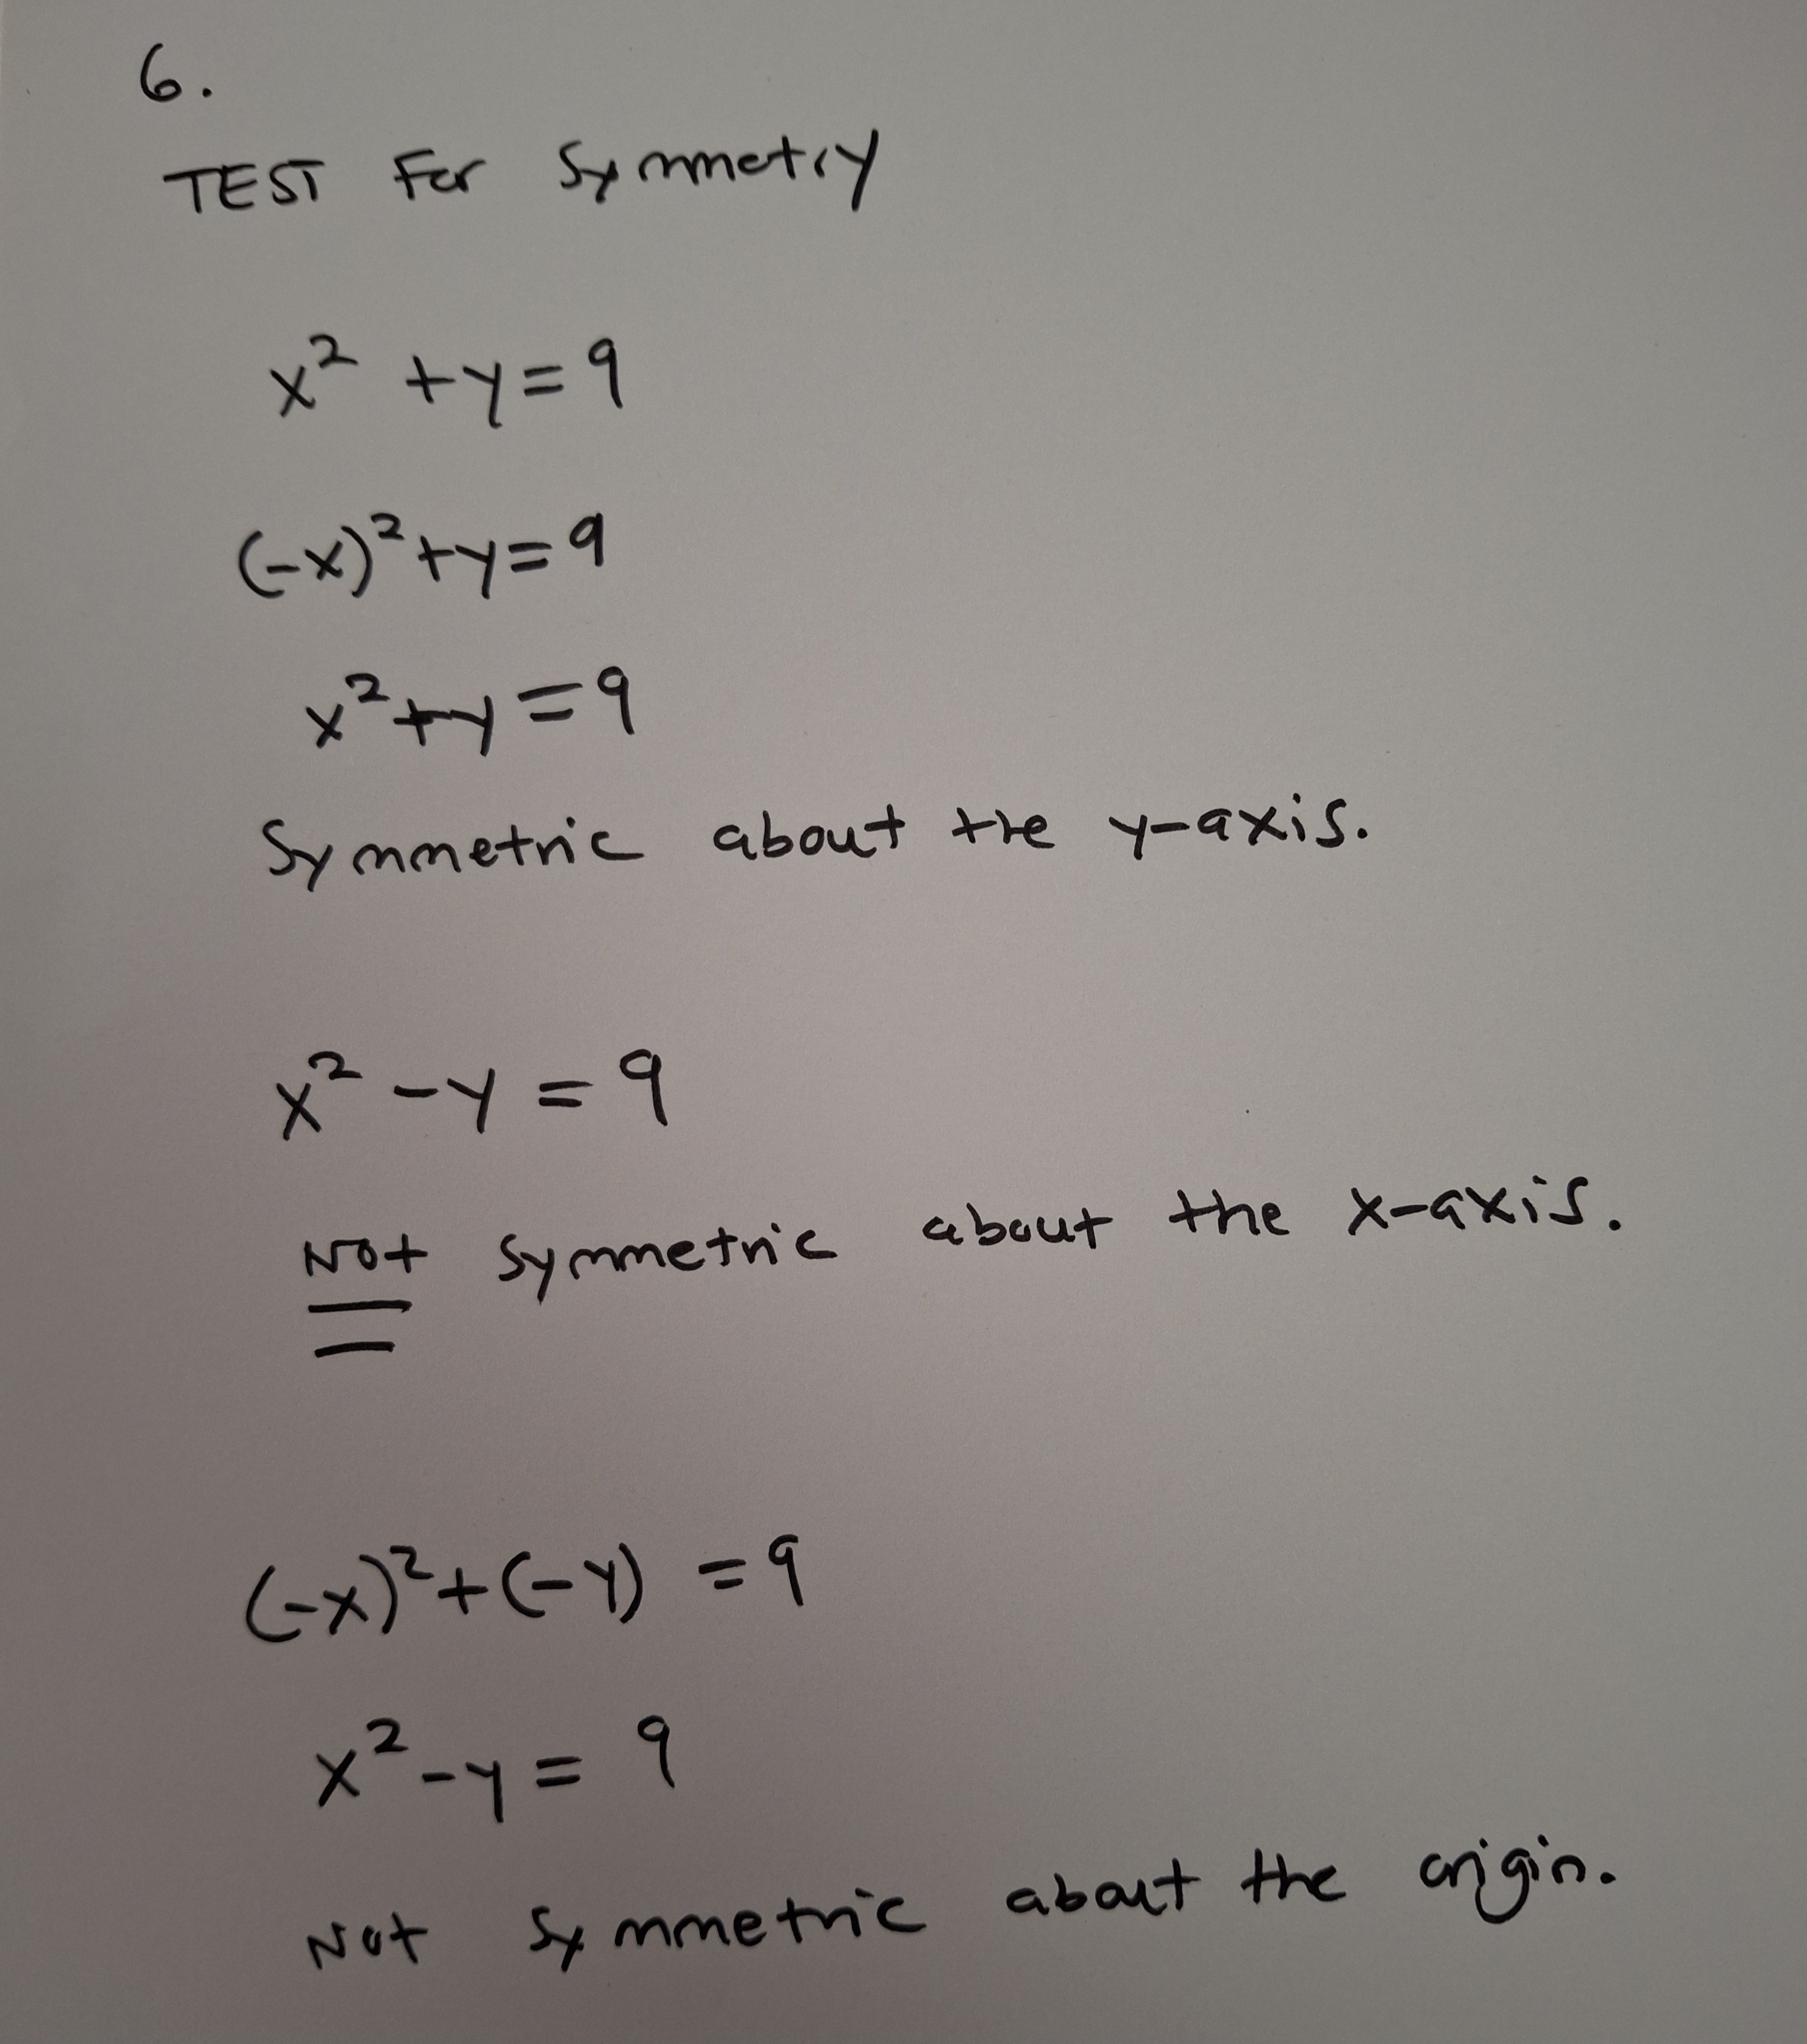 6.
TEST For Symmetry
x² + y = 9
(-x)² + y = 9
x² + y = 9
Symmetric about the y-axis.
x² - y = 9
Not symmetric about the x-axis.
(-x)² + (-y) = 9
x² - y = 9
Not symmetric about the origin.